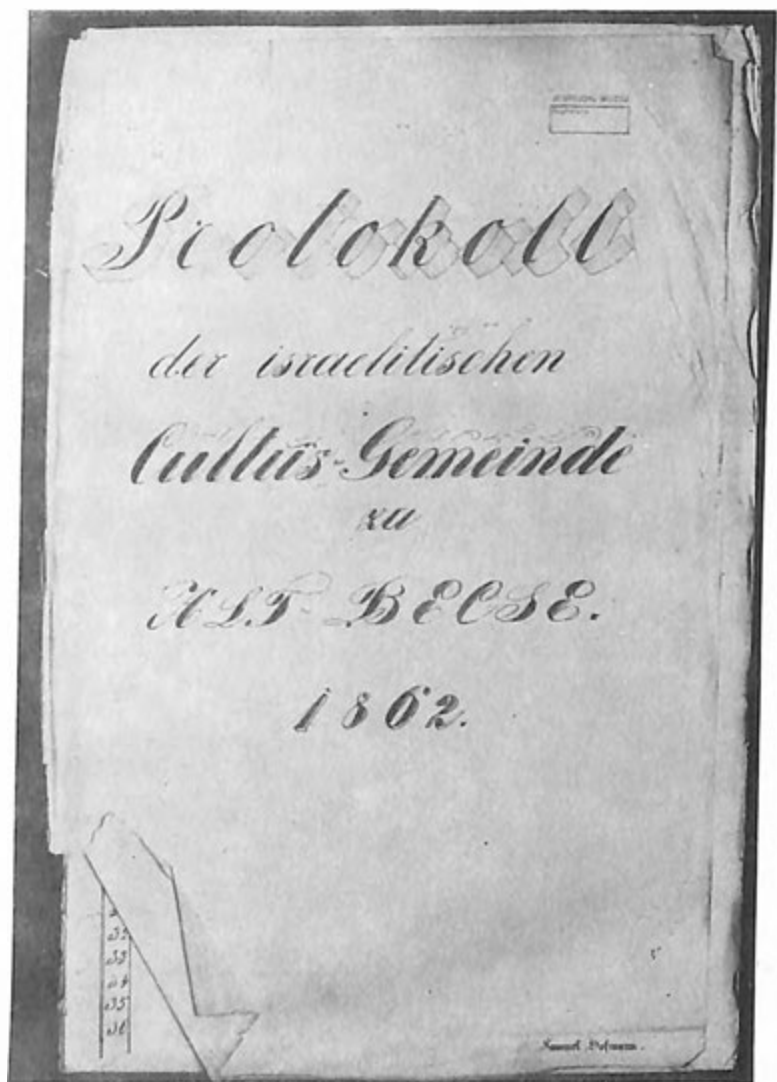 Protokoll
der israelitischen
Cultus-Gemeinde
zu
ALT-BECSE.
1862.
33
34
35
36
Samuel Hofmann.